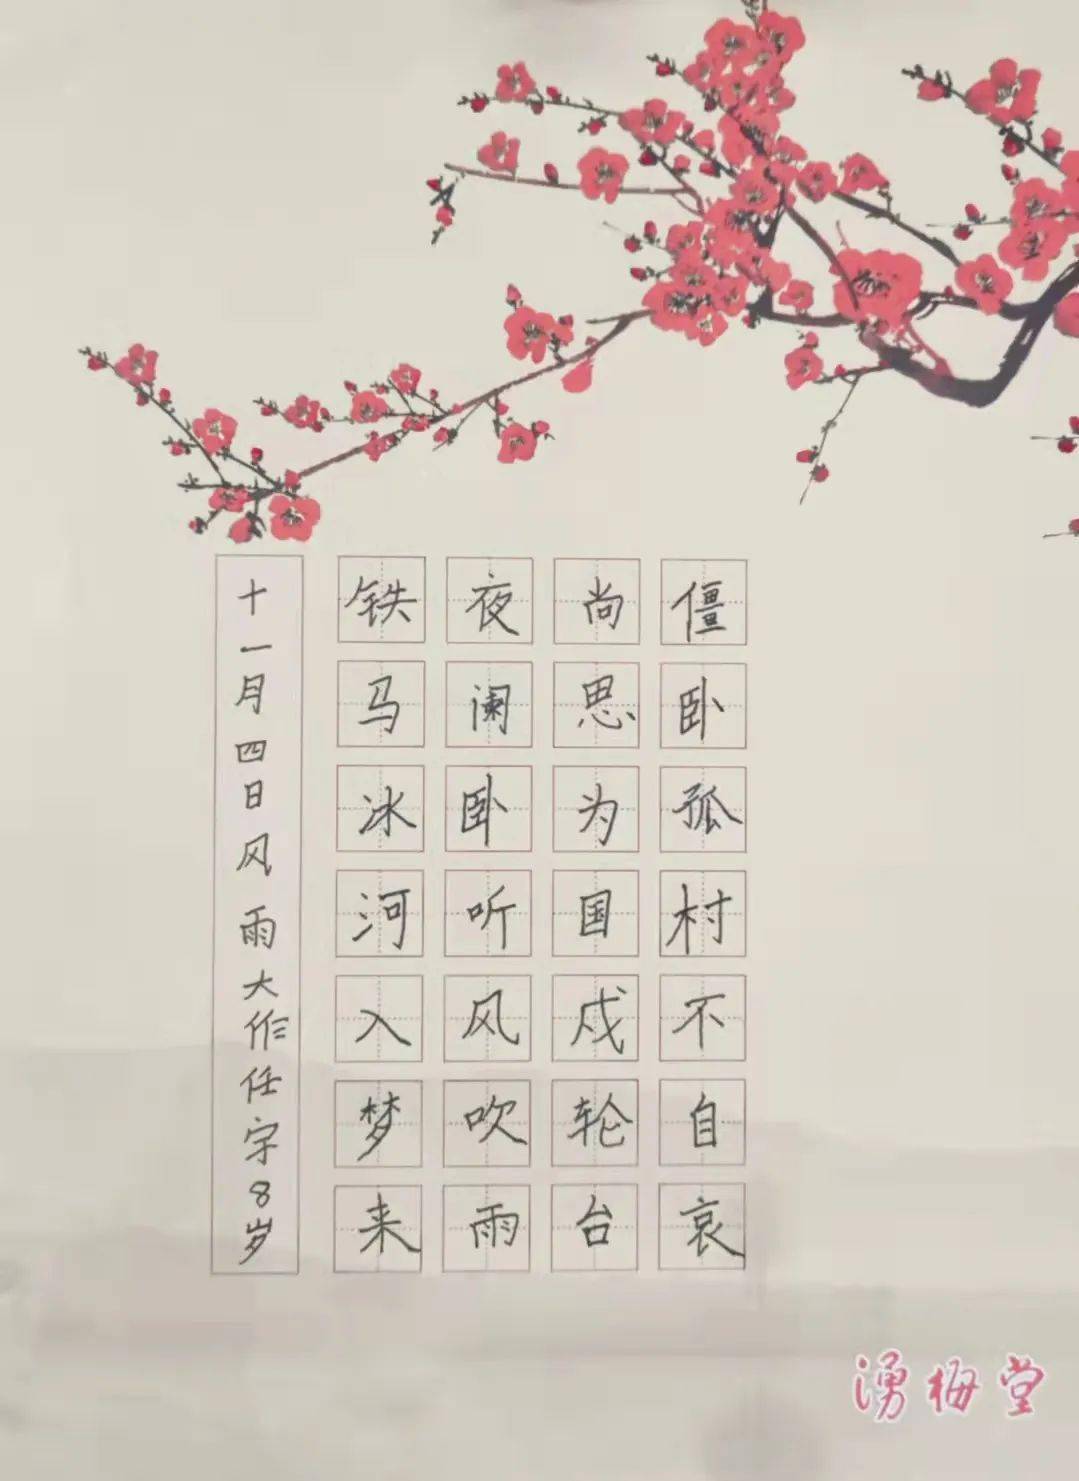 僵卧孤村不自哀
尚思为国戍轮台
夜阑卧听风吹雨
铁马冰河入梦来
十一月四日风雨大作任字8岁
湧梅堂